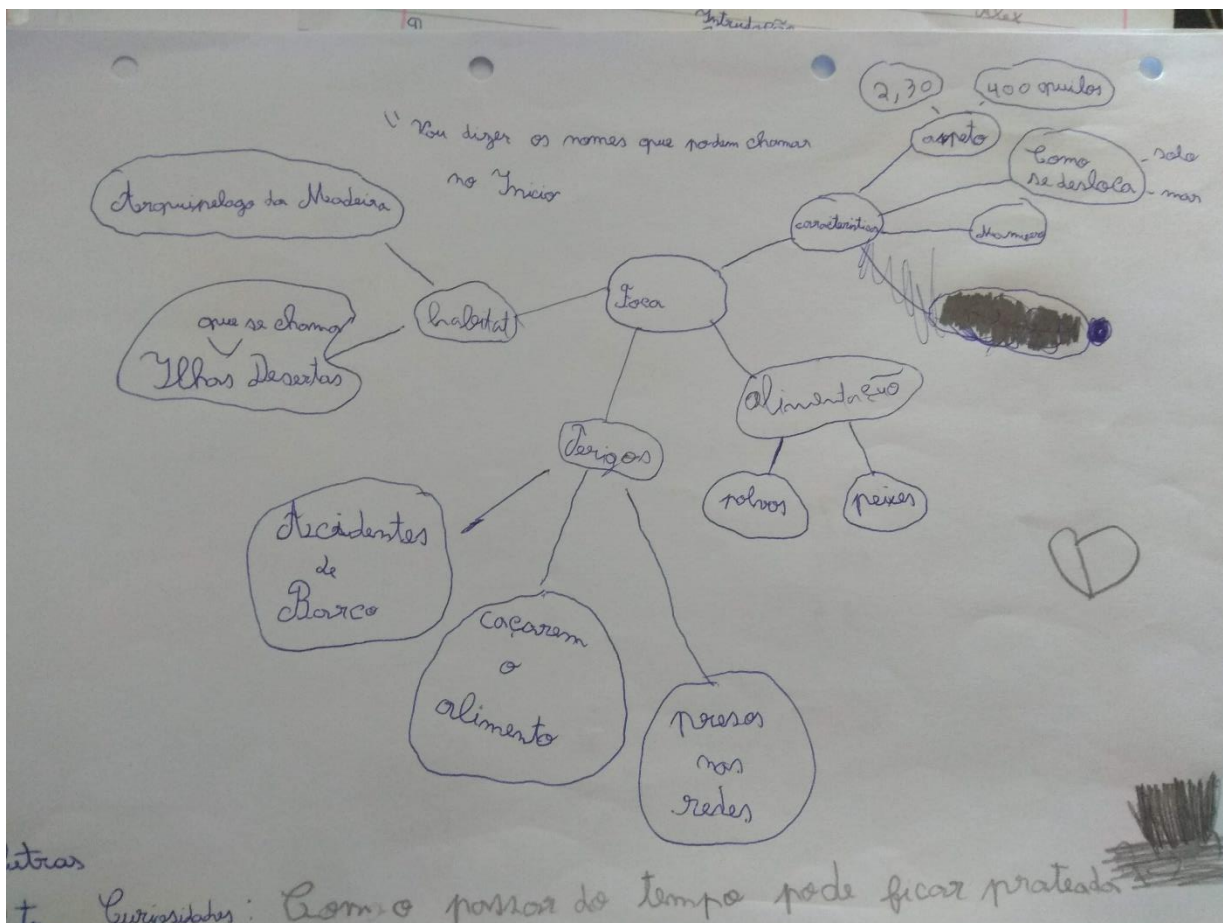 Introdução
"Vou dizer os nomes que podem chamar
no Início
2,30
400 quilos
aspeto
Como
se desloca
- solo
- mar
características
Mamífero
Arquipelago da Madeira
habitat
que se chama
Ilhas Desertas
Foca
alimentação
polvos
peixes
Perigos
Acidentes
de
Barco
caçarem
o
alimento
presos
nas
redes
Curiosidades: Com o passar do tempo pode ficar prateada